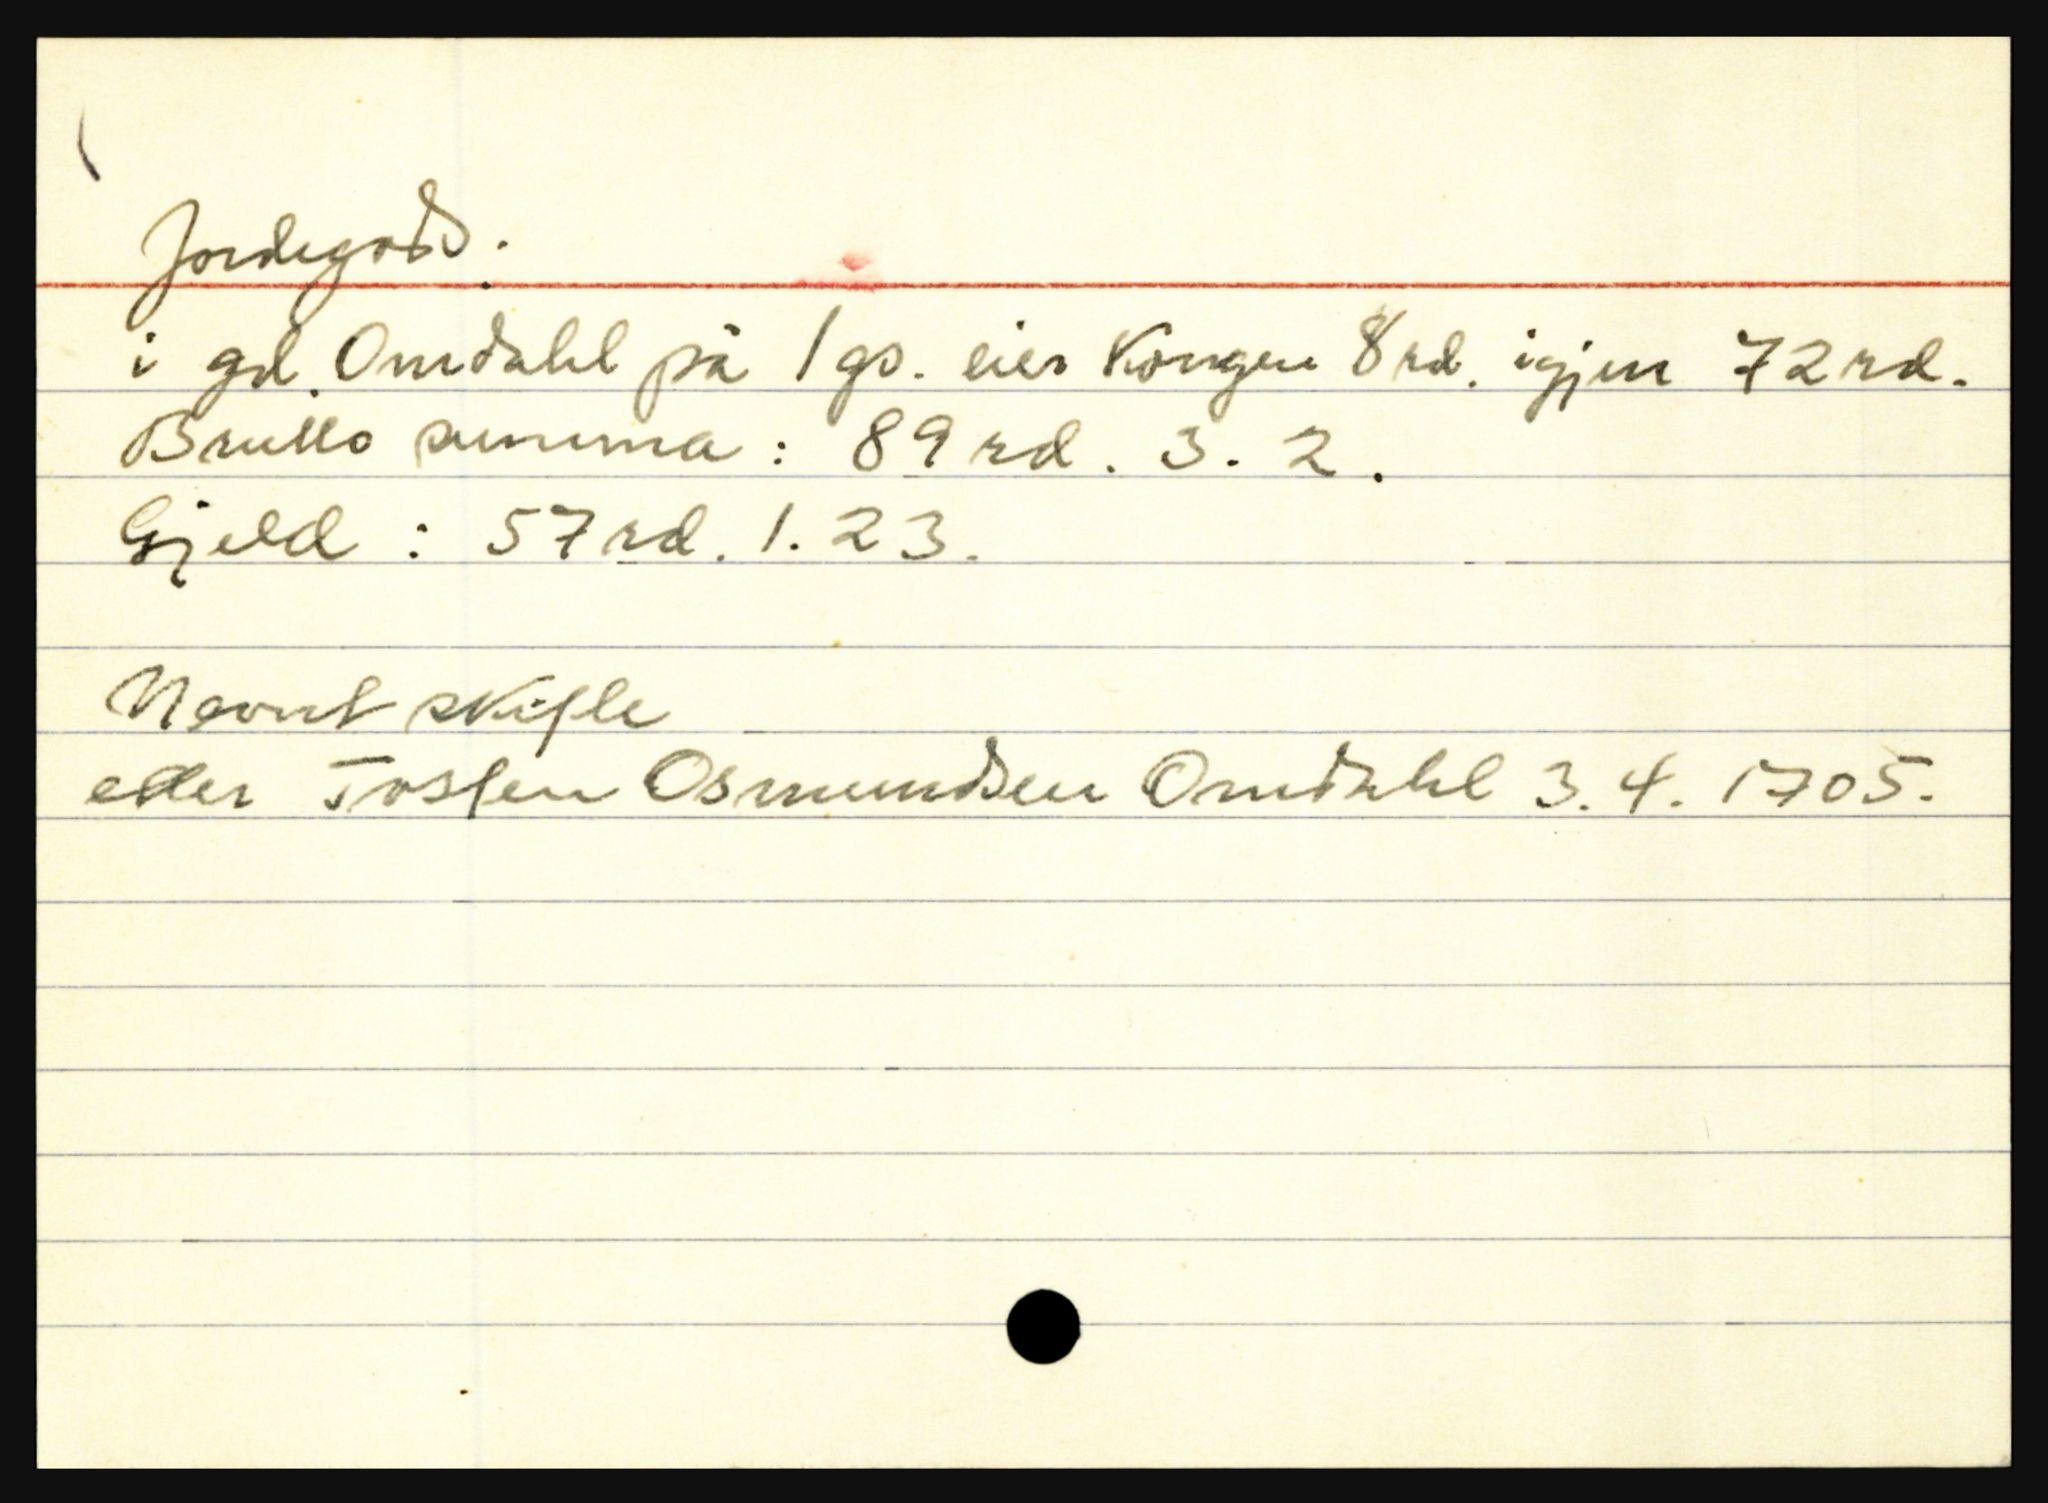 Jordegods.
i gd. Omdahl på 1 gs. eier Kongen 8 rd. igjen 72 rd.
Brutto summa: 89 rd. 3. 2.
Gjeld: 57 rd. 1. 23.
Nevnt skifte
etter Tosten Osmundsen Omdahl 3. 4. 1705.